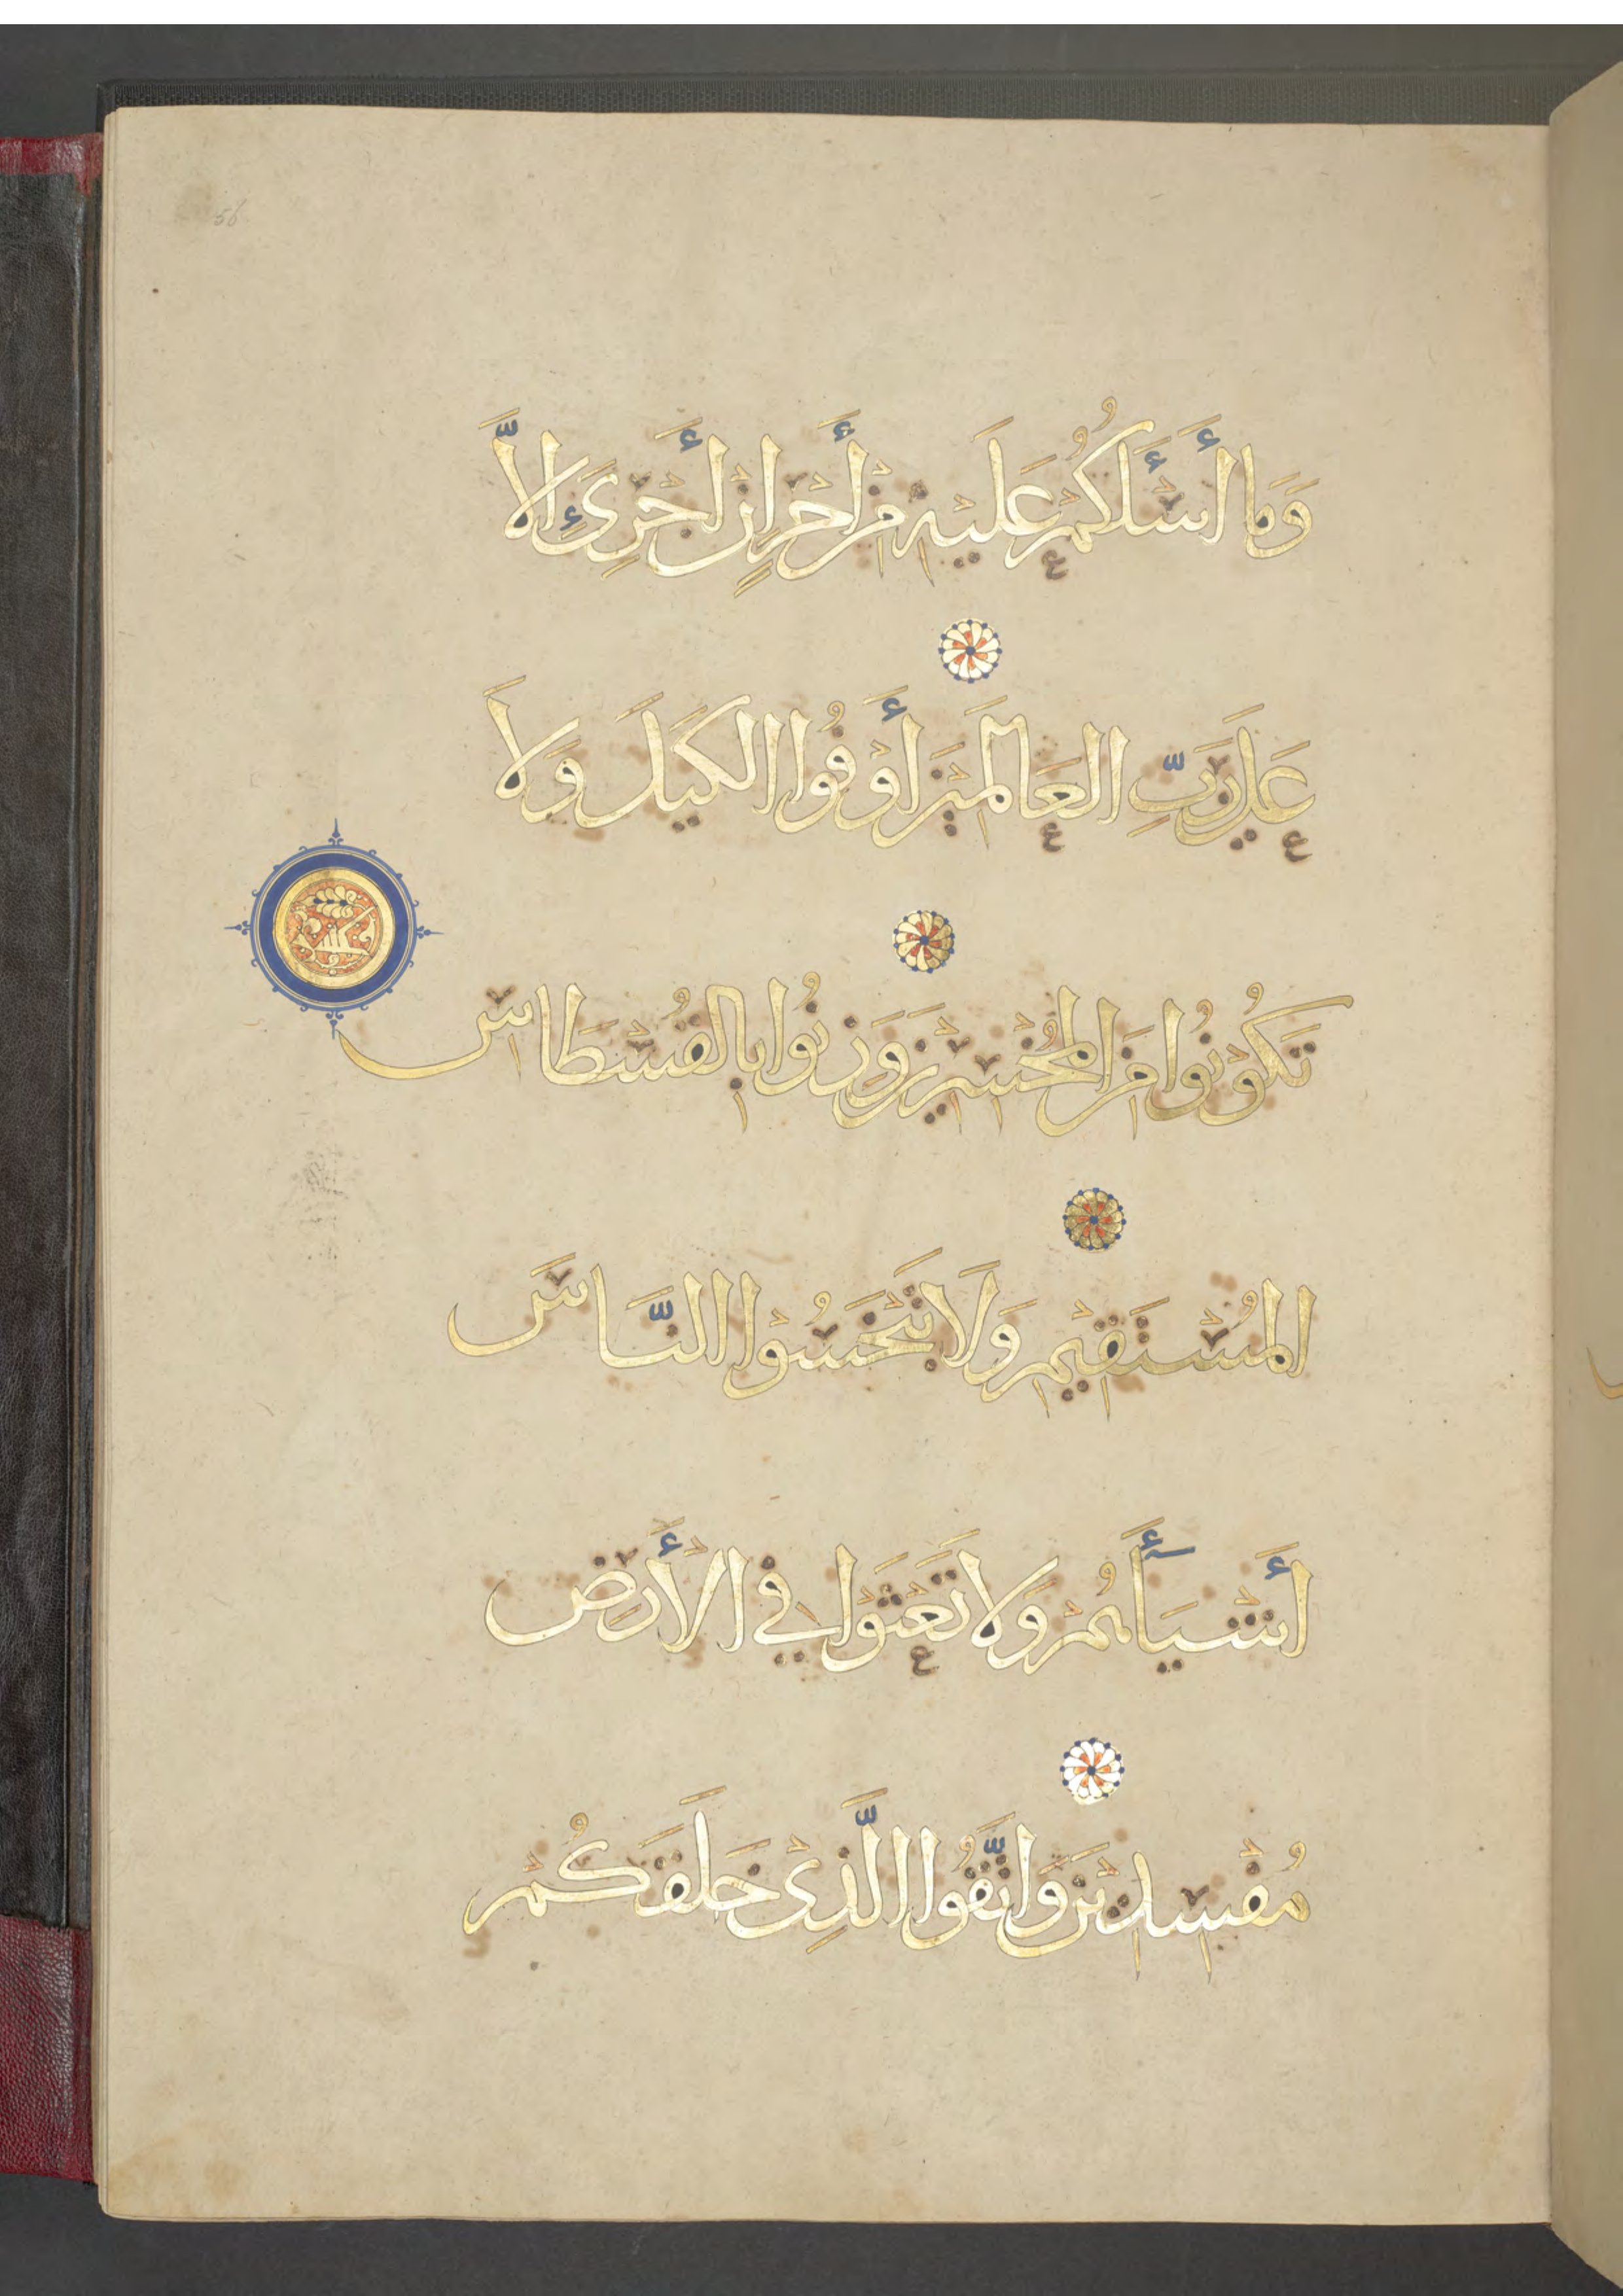 56
وَمَا أَسْأَلُكُمْ عَلَيْهِ مِنْ أَجْرٍ إِنْ أَجْرِيَ إِلَّا
عَلَى رَبِّ الْعَالَمِينَ أَوْفُوا الْكَيْلَ وَلَا
تَكُونُوا مِنَ الْمُخْسِرِينَ وَزِنُوا بِالْقُسْطَاسِ
الْمُسْتَقِيمِ وَلَا تَبْخَسُوا النَّاسَ
أَشْيَآأَهُمْ وَلَا تَعْثَوْا فِي الْأَرْضِ
مُفْسِدِينَ وَاتَّقُوا الَّذِي خَلَقَكُمْ